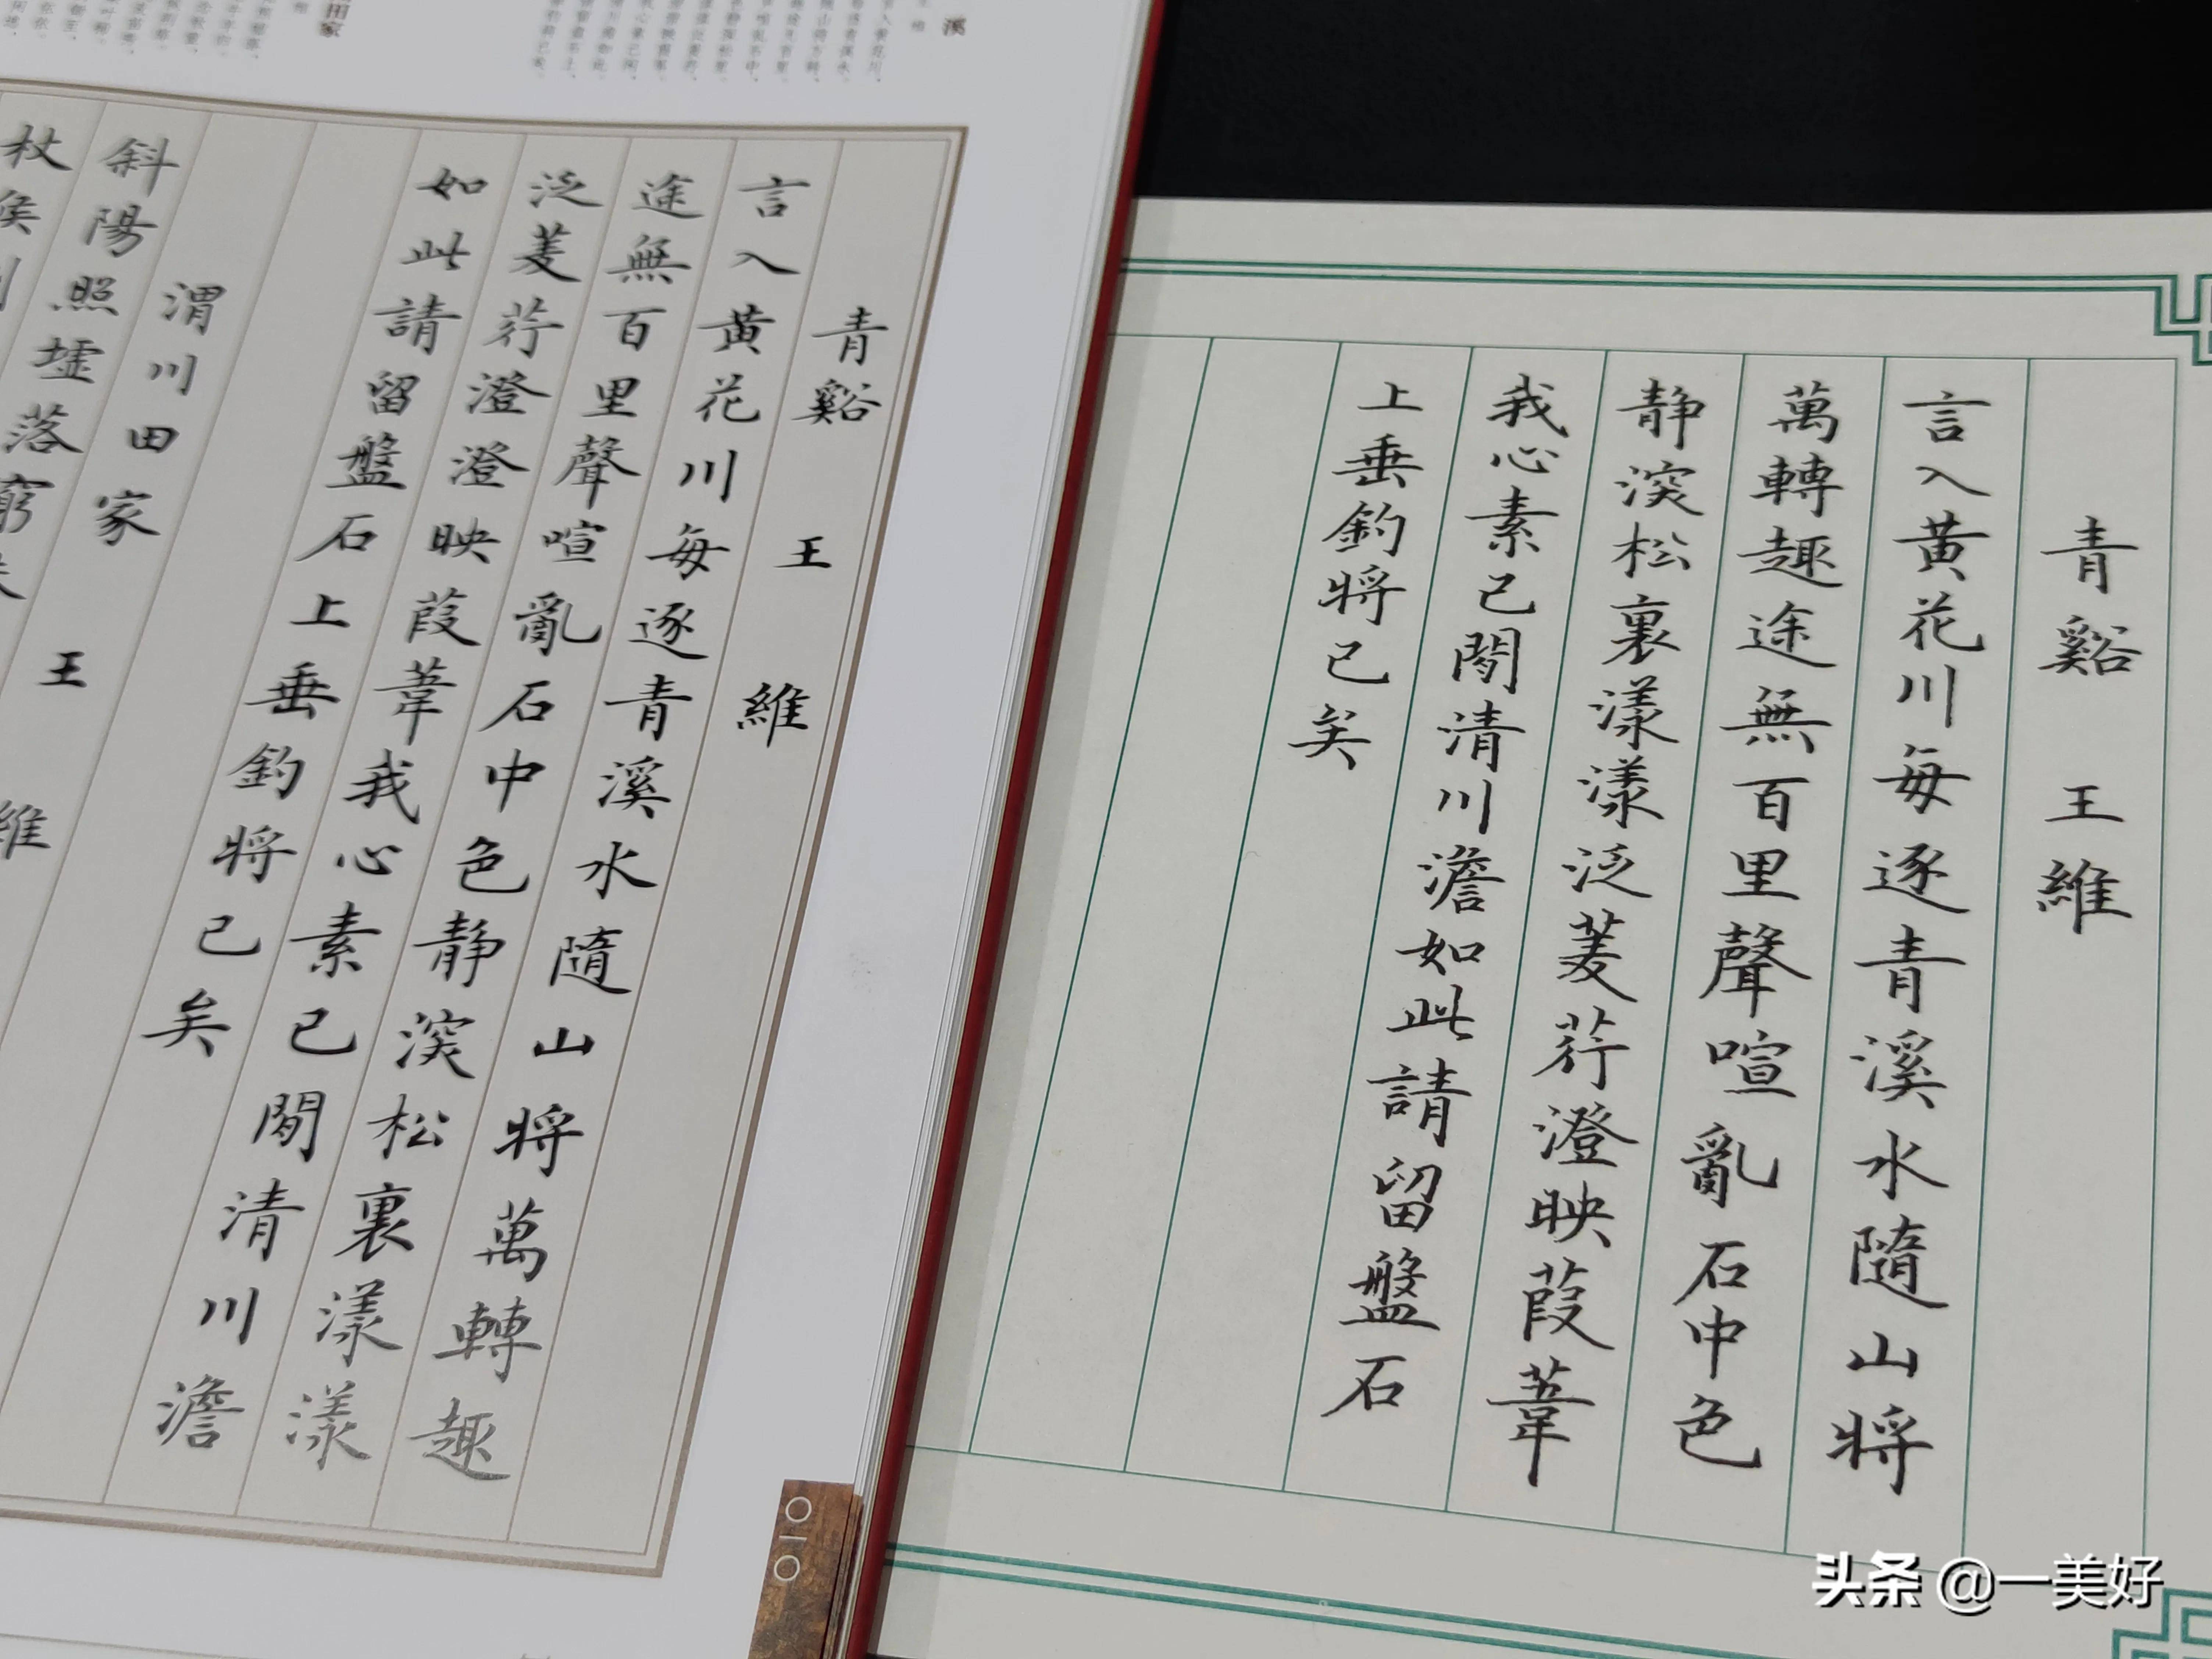 青谿 王維
言入黄花川每逐青溪水隨山將萬轉趣
途無百里聲喧亂石中色静深松裏漾漾
泛菱荇澄澄映葭葦我心素已閒清川澹
如此請留盤石上垂釣將已矣
渭川田家 王維
斜陽照墟落窮
杖候
010
青谿 王維
言入黄花川每逐青溪水隨山將
萬轉趣途無百里聲喧亂石中色
静深松裏漾漾泛菱荇澄映葭葦
我心素已閒清川澹如此請留盤石
上垂釣將已矣
头条 @一美好